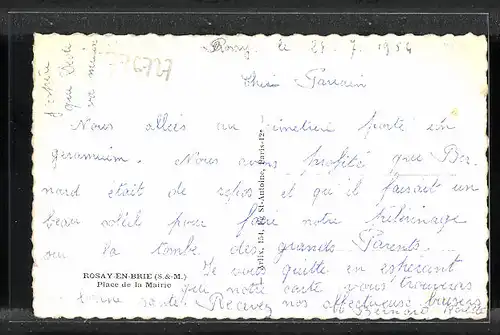 Rosay le 25. 7. 1954
j'espère
que Dédé
va mieux
776727
Cher Parrain
Nous allées au cimetière porté un
géranium. Nous avons profité que Ber-
nard était de repos et qu'il faisait un
beau soleil pour faire notre pélerinage
sur la tombe des grands Parents.
Je vous quitte en espérant
que notre carte vous trouvera
bonne santé. Recevez nos affectueux baisers
Bernard
ROSAY-EN-BRIE (S.&M.)
Place de la Mairie
154, St-Antoine, Paris-12e